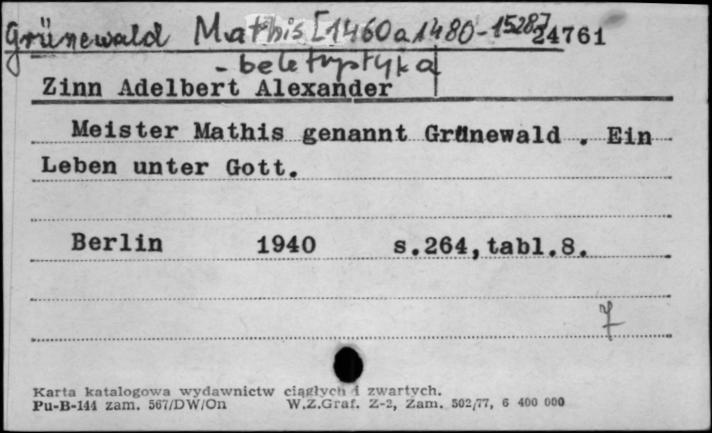 Grünewald Mathis [1460 a 1480-1528] 24761
- beletrystyka
Zinn Adelbert Alexander
Meister Mathis genannt Grünewald . Ein
Leben unter Gott.
Berlin 1940 s.264,tabl.8.
7
Karta katalogowa wydawnictw ciągłych i zwartych.
Pu-B-144 zam. 567/DW/On W.Z.Graf. Z-2, Zam. 502/77, 6 400 000